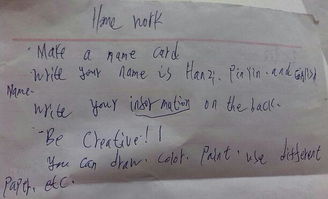 Home work
- Make a name card
write your name is Hanzi, Pinyin, and English
Name.
write your information on the back.
- Be Creative!!
You can draw. color. paint. use different
paper. etc.